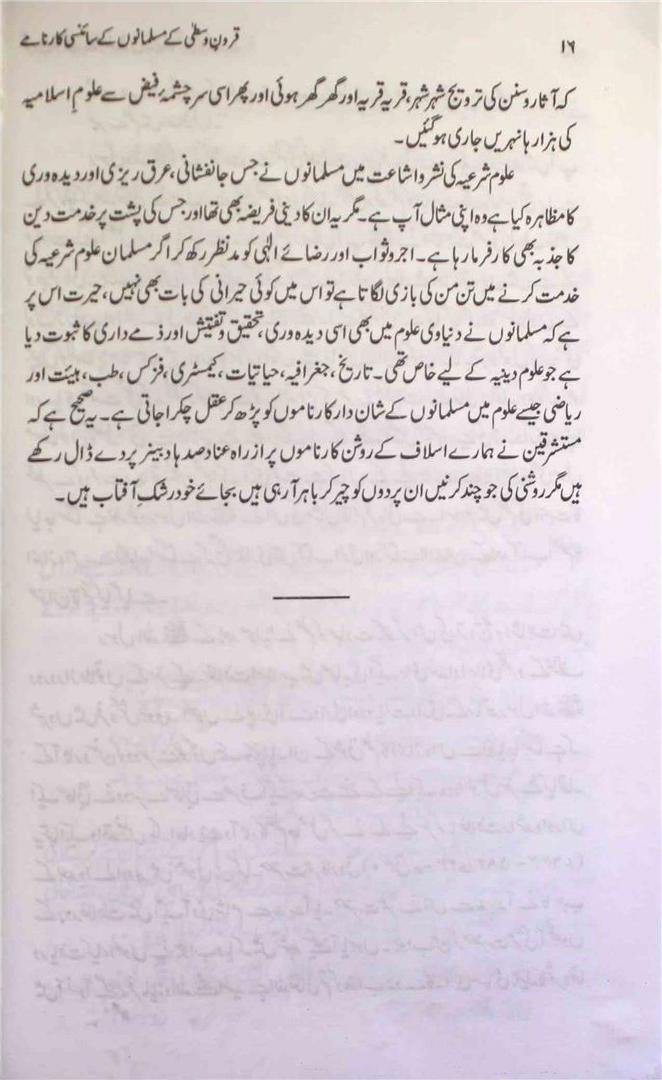 ۱۶
قرونِ وسطٰی کے مسلمانوں کے سائنسی کارنامے
کہ آثار و سنن کی ترویج شہر شہر، قریہ قریہ اور گھر گھر ہوئی اور پھر اسی سرچشمۂ فیض سے علومِ اسلامیہ
کی ہزارہا نہریں جاری ہوگئیں۔
علوم شرعیہ کی نشر و اشاعت میں مسلمانوں نے جس جانفشانی، عرق ریزی اور دیدہ وری
کا مظاہرہ کیا ہے وہ اپنی مثال آپ ہے۔ مگر یہ ان کا دینی فریضہ بھی تھا اور جس کی پشت پر خدمت دین
کا جذبہ بھی کارفرما رہا ہے۔ اجر و ثواب اور رضائے الٰہی کو مدنظر رکھ کر اگر مسلمان علوم شرعیہ کی
خدمت کرنے میں تن من کی بازی لگاتا ہے تو اس میں کوئی حیرانی کی بات بھی نہیں، حیرت اس پر
ہے کہ مسلمانوں نے دنیاوی علوم میں بھی اسی دیدہ وری، تحقیق و تفتیش اور ذمے داری کا ثبوت دیا
ہے جو علوم دینیہ کے لیے خاص تھی۔ تاریخ، جغرافیہ، حیاتیات، کیمسٹری، فزکس، طب، ہیئت اور
ریاضی جیسے علوم میں مسلمانوں کے شان دار کارناموں کو پڑھ کر عقل چکرا جاتی ہے۔ یہ صحیح ہے کہ
مستشرقین نے ہمارے اسلاف کے روشن کارناموں پر از راہ عناد صدہا دبیز پردے ڈال رکھے
ہیں مگر روشنی کی جو چند کرنیں ان پردوں کو چیر کر باہر آرہی ہیں بجائے خود رشکِ آفتاب ہیں۔